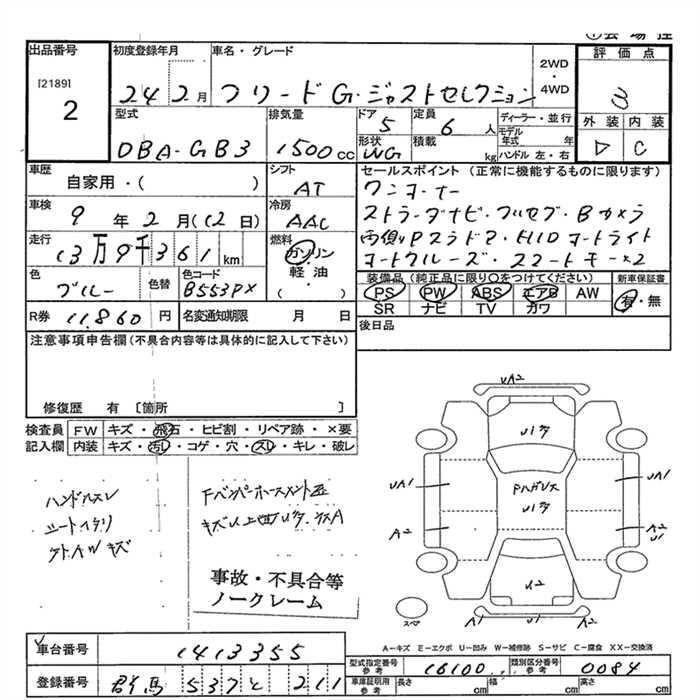 出品番号
[2189]
2
初度登録年月
24 2月
車名・グレード
フリード G・ジャストセレクション
2WD
・
4WD
評価点
3
外装 内装
▷ C
型式
DBA-GB3
排気量
1500cc
ドア
5
形状
WG
定員
6人
積載
kg
ディーラー・並行
モデル年式 年
ハンドル 左・右
車歴
自家用・( )
シフト
AT
セールスポイント (正常に機能するものに限ります)
ワンオーナー
ストラーダナビ・フルセグ・Bカメラ
両側Pスラドア・HIDオートライト
オートクルーズ・スマートキー×2
車検
9年2月(12日)
冷房
AAC
走行
13万9千361km
燃料
ガソリン
軽油
( )
色
ブルー
色替
色コード
B553PX
装備品(純正品に限り○をつけてください)
PS PW ABS エアB AW
SR ナビ TV カワ
新車保証書
有・無
R券 11,860円
名変通知期限 月 日
後日品
注意事項申告欄(不具合内容等は具体的に記入して下さい)
修復歴 有 〔箇所 〕
検査員記入欄
FW キズ・飛石・ヒビ割・リペア跡・×要
内装 キズ・汚レ・コゲ・穴・スレ・キレ・破レ
ハンドルスレ
シートヘタリ
事故・不具合等
ノークレーム
UA2
U1
UA1
A2
UA1
A2
U1
U2
A1
A1
スペア
A-キズ E-エクボ U-凹み W-補修跡 S-サビ C-腐食 XX-交換済
車台番号
1413355
登録番号
群馬 537 と 211
型式指定番号
参考
16100
類別区分番号
参考
0084
車庫証明用
参考
長さ cm 幅 cm 高さ cm